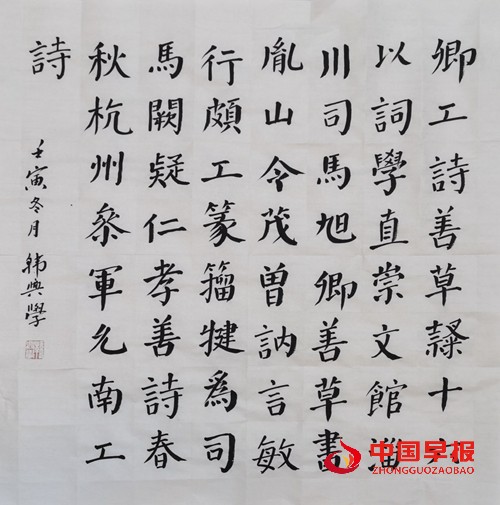 卿工詩善草隸十六
以詞學直崇文館淄
川司馬旭卿善草書
胤山令茂曾訥言敏
行頗工篆籀犍爲司
馬闕疑仁孝善詩春
秋杭州叅軍允南工
詩
壬寅冬月 韩典學
中国早报
ZHONGGUOZAOBAO